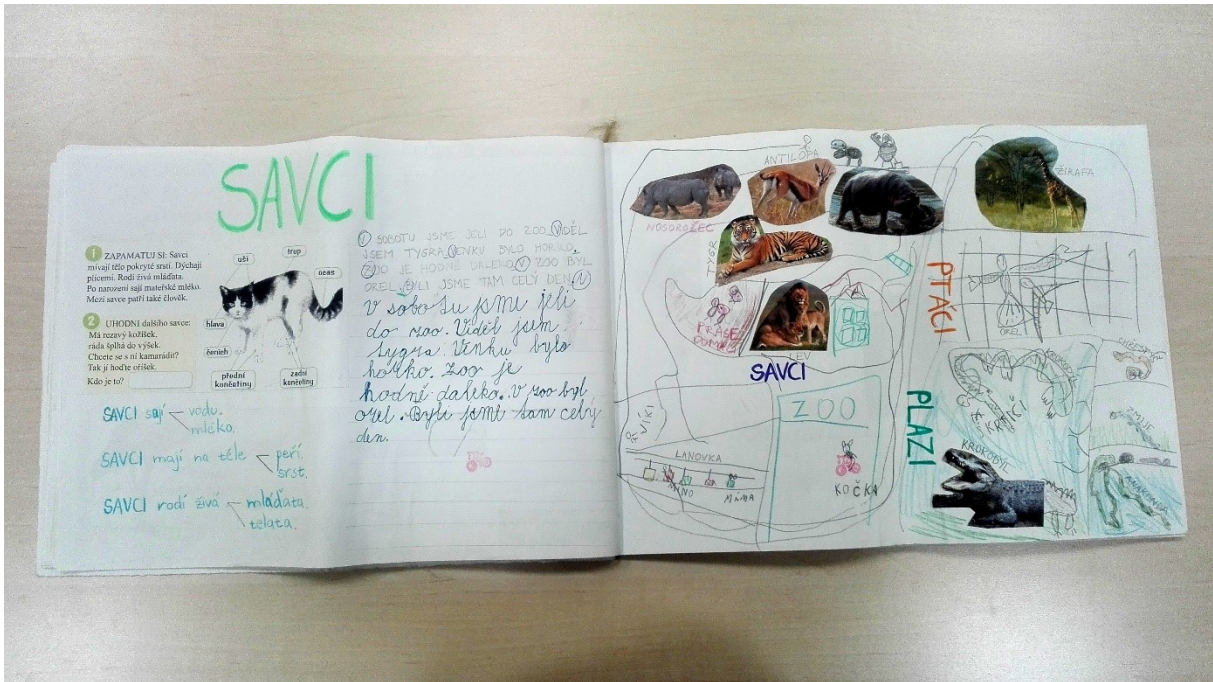 SAVCI
1 ZAPAMATUJ SI: Savci
mívají tělo pokryté srstí. Dýchají
plícemi. Rodí živá mláďata.
Po narození sají mateřské mléko.
Mezi savce patří také člověk.
2 UHODNI dalšího savce:
Má rezavý kožíšek,
ráda šplhá do výšek.
Chcete se s ní kamarádit?
Tak jí hoďte oříšek.
Kdo je to?
uši
trup
ocas
hlava
čenich
přední
končetiny
zadní
končetiny
SAVCI sají
vodu.
mléko.
SAVCI mají na těle
peří.
srst.
SAVCI rodí živá
mláďata.
telata.
V SOBOTU JSME JELI DO ZOO. VIDĚL
JSEM TYGRA. VENKU BYLO HORKO.
ZOO JE HODNĚ DALEKO. V ZOO BYL
OREL. BYLI JSME TAM CELÝ DEN.
V sobotu jsme jeli
do zoo. Viděl jsem
tygra. Venku bylo
horko. Zoo je
hodně daleko. V zoo byl
orel. Byli jsme tam celý
den.
ANTILOPA
NOSOROŽEC
TYGR
PRASE
DOMÁCÍ
LEV
SAVCI
ZOO
LANOVKA
MÁMA
KOČKA
ŽIRAFA
PTÁCI
OREL
PLAZI
KROKODÝL
KROKODÝL
ZMIJE
ANAKONDA